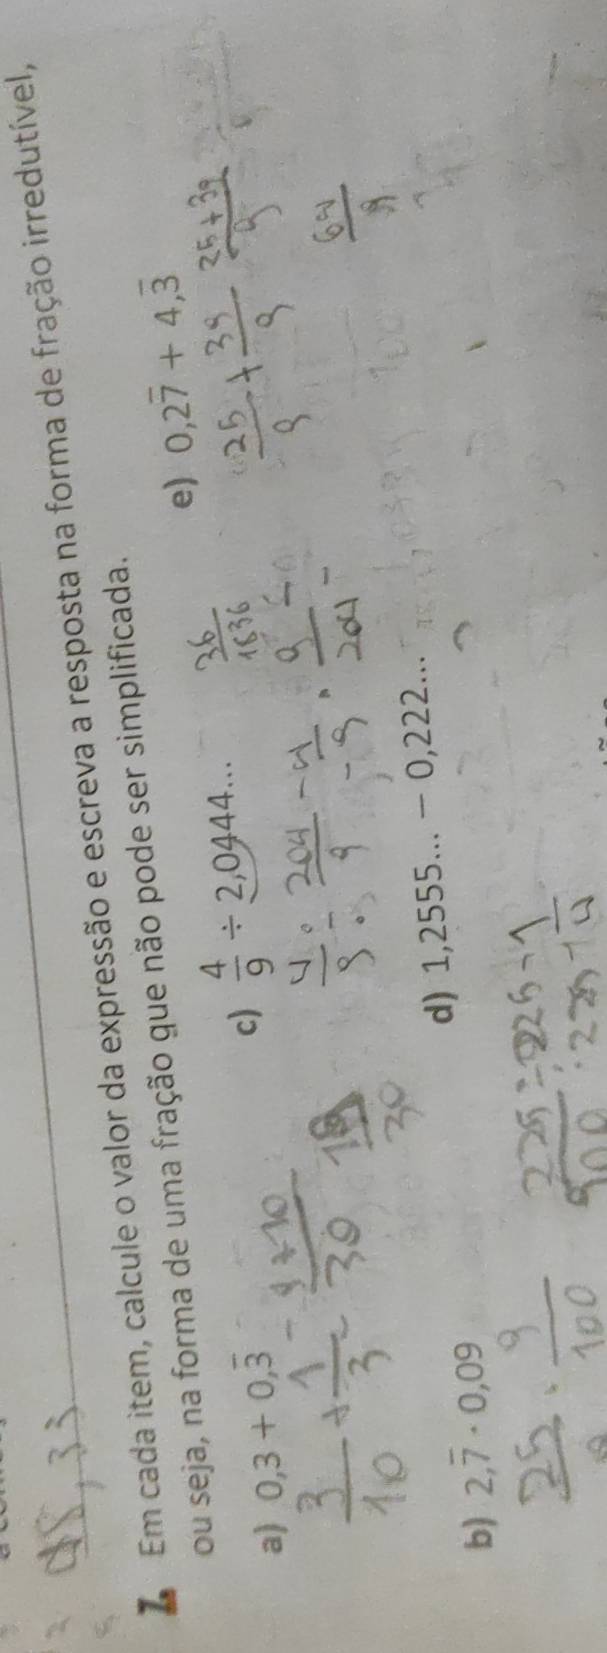 7. Em cada item, calcule o valor da expressão e escreva a resposta na forma de fração irredutível,
ou seja, na forma de uma fração que não pode ser simplificada.
a) 0,3 + 0,3̅
3/10 + 1/3 = 9+10/30 19/30
b) 2,7̅ · 0,09
25/9 · 9/100 225/900 ÷225/÷225 = 1/4
c) 4/9 ÷ 2,0444...
4/9 : 204/9 - 4/9 · 9/204 = 36/1836
d) 1,2555... – 0,222...
e) 0,27̅ + 4,3̅
25/9 + 39/9 25+39/9 64/9